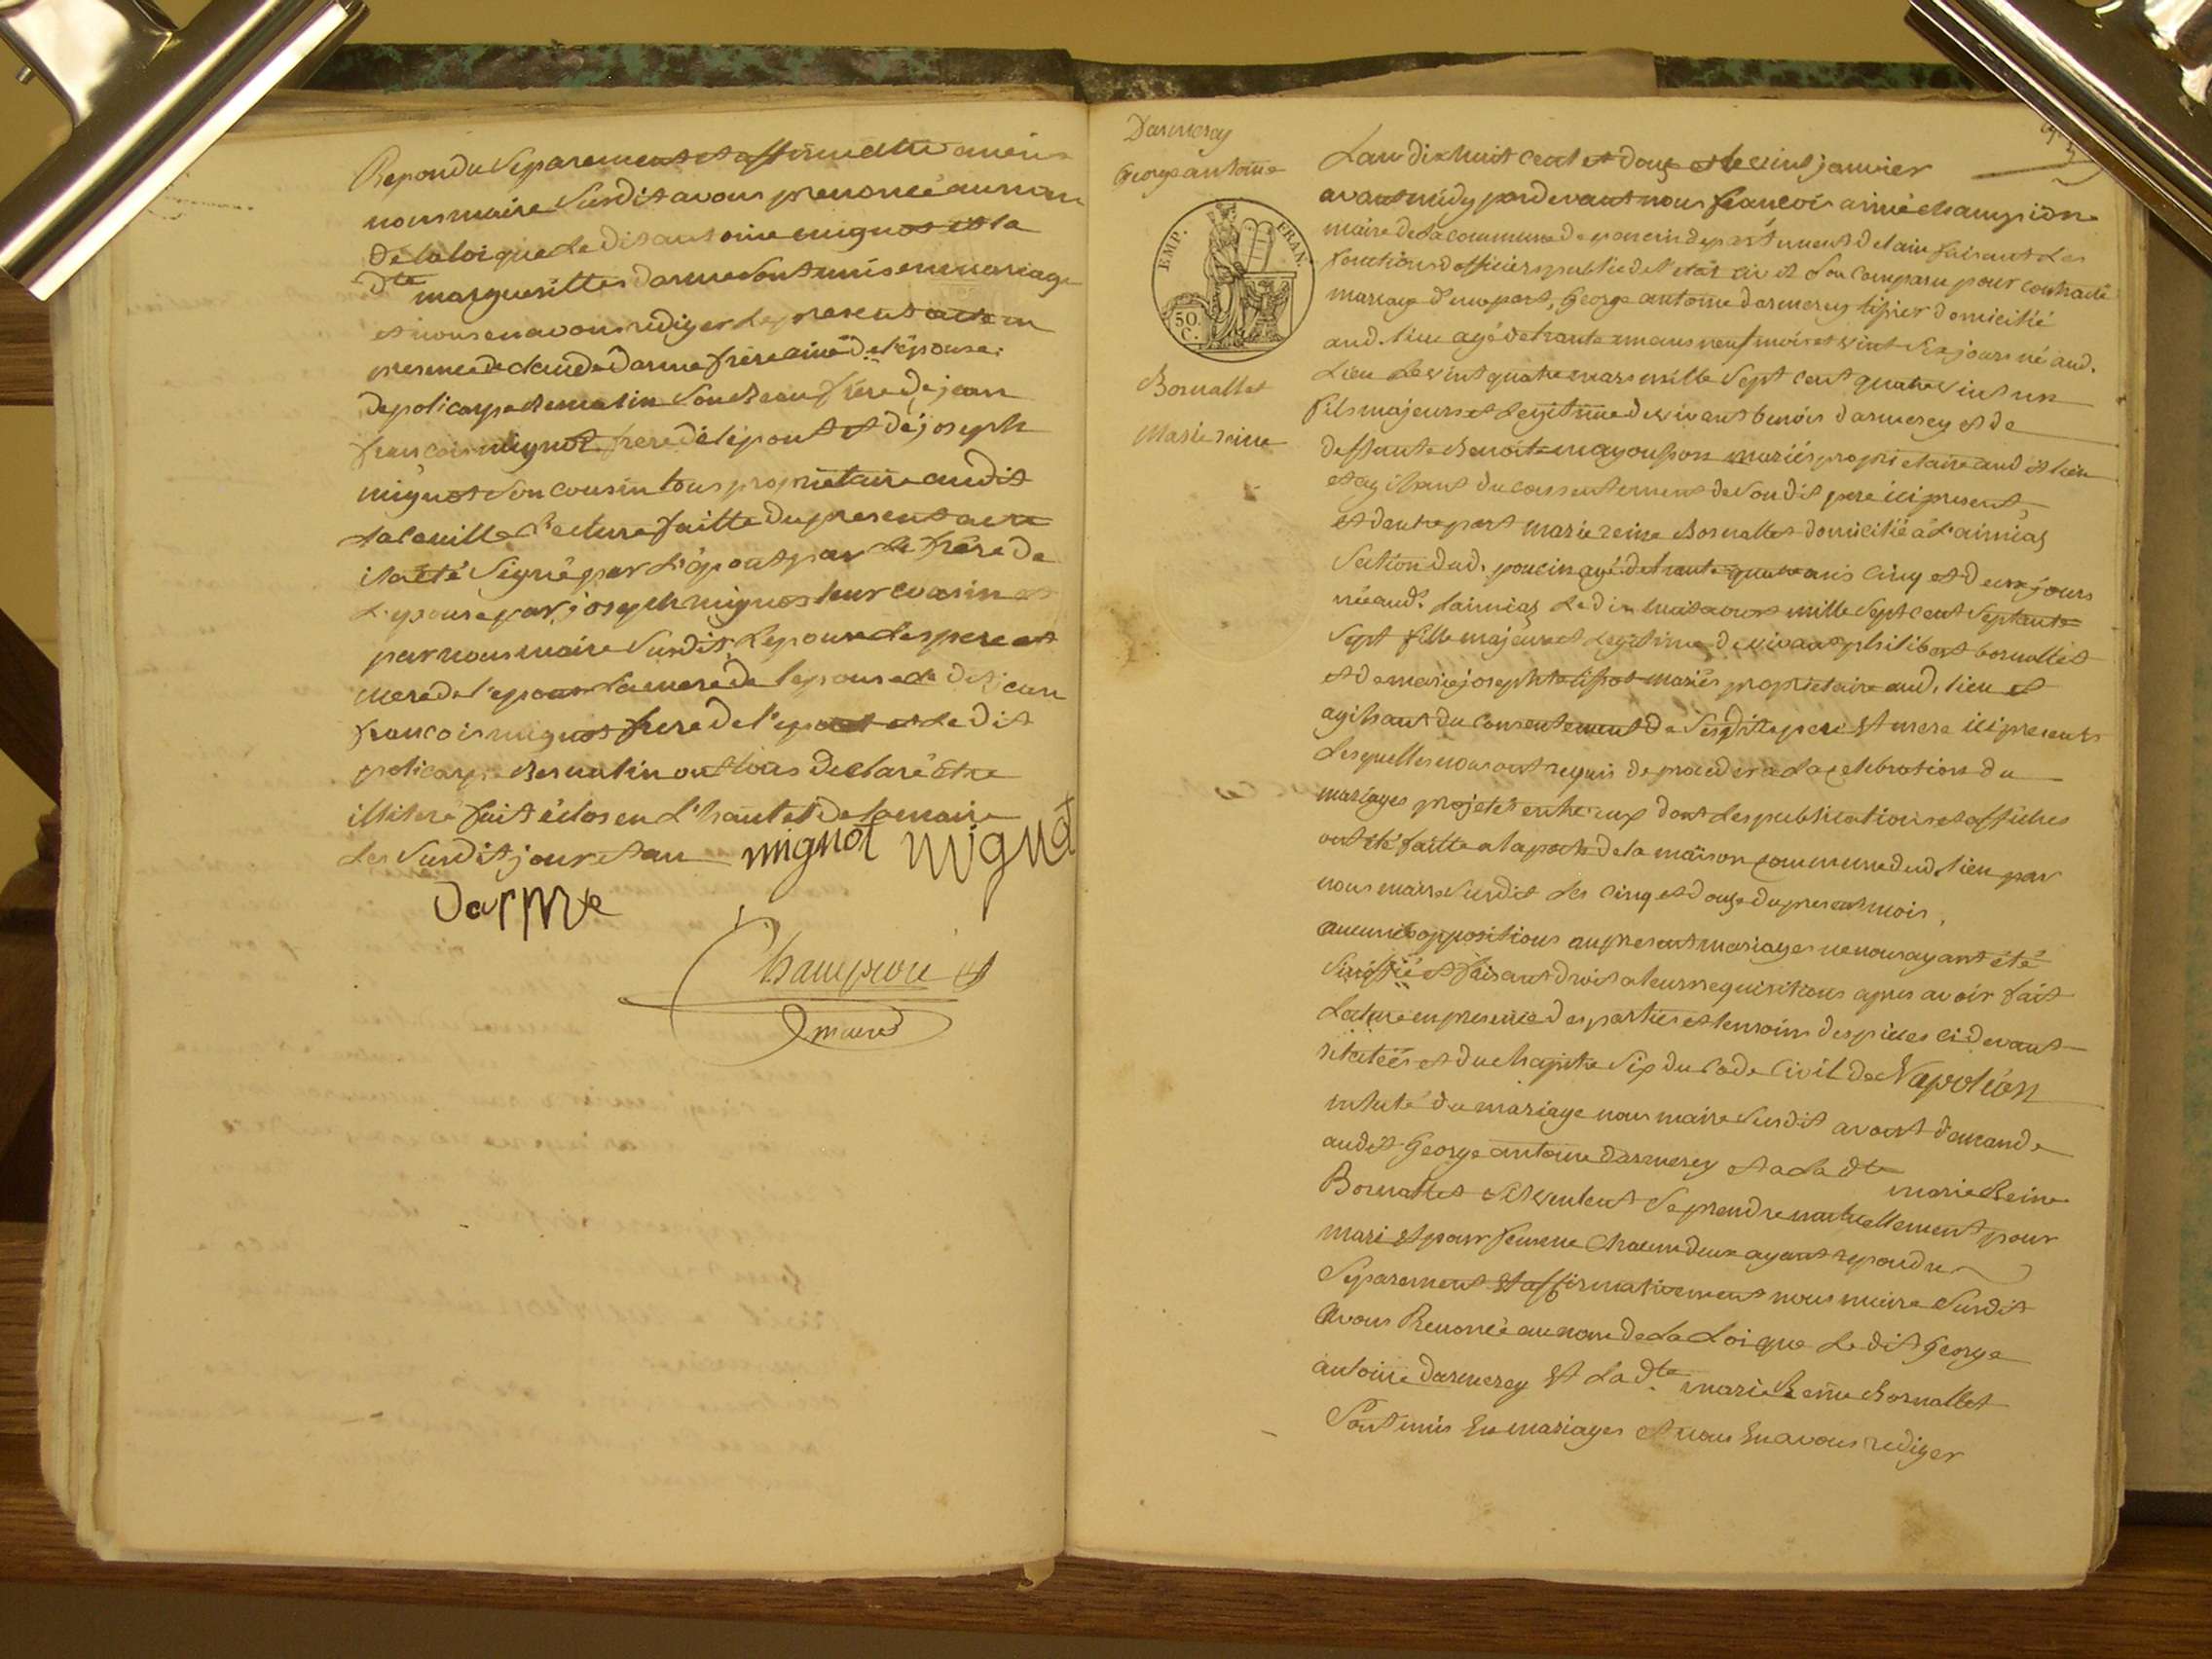 Repondu Separement et affirmativement
nous maire Susdit avons prenoncé au nom
de la loi que Le Dit antoine mignot et la
dte margueritte darme Sont unis en mariage
et nous en avons rediger Le present acte en
presence de claude Darme frere ainé de l'épouse
de policarpe Bernalin Son Beau frere de jean
francois mignot frere de lépout et de joseph
mignot Son cousin tous propriétaire audit
Lecture faitte du present acte
il a été Signé par L'épout par Le frere de
L'epouse par joseph mignot leur cousin et
par nous maire Susdit L'epouse Les pere et
mere de l'epoux La mere de l'epouse Le dit jean
francois mignot frere de l'epout et Le dit
policarpe Bernalin ont tous declaré être
illiteré fait éclos en L'hautel de la mairie
Les Susdit jour et an mignot mignot
Darme
Champion
maire
Darmerey
George antoine
EMP. FRAN.
50.
C.
Bornallet
Marie reine
L'an dix huit cent et douze et le vint janvier
avant midy pardevant nous francois aimé champion
maire de la commune de poncin departement de lain faisant Les
fonctions d'officier public de l'état civil Son comparu pour contracté
mariage d'une part, George antoine darmerey tisier domicilié
aud. lieu agé de trante ans neuf mois et vint Six jours né aud.
Lieu Le vint quatre mars mille Sept cent quatre vint un
fils majeurs et Legitime de vivant benois darmerey et de
deffunte Benoite mariés propriétaire aud et lieu
et agissant du consentement de Son dit pere ici present,
et dautre part marie reine Bornallet domicilié à L'aimiaz
Section dud. poncin agé de trante quatre ans cinq et deux jours
née aud. Laimiaz Le dix huit aout mille Sept cent Septante
Sept fille majeure et Legitime de vivant philibert bornallet
et de marie josephte mariés propriétaire aud. lieu et
agissant du consentement de Ses dits pere et mere ici presents
Lesquelles nous ont requis de proceder a La celebration du
mariages projeté entre eux dont Les publications et affiches
ont été faitte a la porte de la maison commune dud. lieu par
nous maire Susdit Les cinq et douze du present mois,
aucunes oppositions au present mariages ne nous ayant été
Sinifié et faisant droit a leurs requisitions apres avoir fait
Lecture en presence des parties et temoins des pieces ci devant
et du chapitre Six du Code Civil de Napoléon
intuté du mariage nous maire Susdit avont demande
audit George antoine darmerey et a La dte marie Reine
Bornallet Sil veulent Se prendre mutuellement pour
mari et pour femme chacun deux ayant repondu
Separement et affirmativement nous maire Susdit
avons Renoncé au nom de La Loi que Le dit George
antoine darmerey Et La dte marie Reine Bornallet
Sont unis En mariages et nous En avons rediger